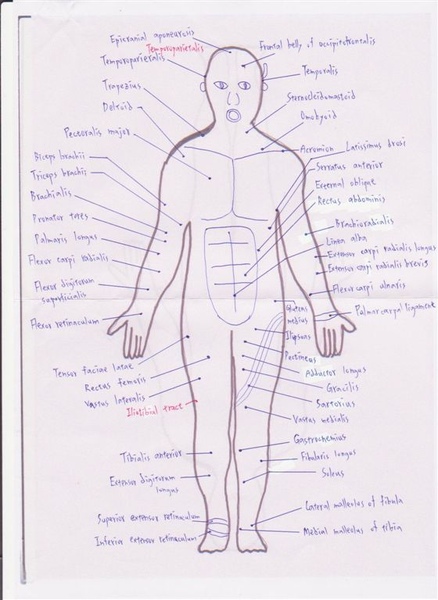 Epicranial aponeurosis
Temporoparietalis
Temporoparieralis
Trapedius
Deltoid
Pectoralis major
Biceps brachii
Triceps brachii
Brachialis
Pronator teres
Palmaris longus
Flexor carpi radialis
Flexor digitorum
superficialis
Flexor retinaculum
Tensor faciae latae
Rectus femoris
Vastus lateralis
Iliotibial tract
Tibialis anterior
Extensor digitorum
longus
Superior extensor retinaculum
Inferior extensor retinaculum
Frontal belly of occipitofrontalis
Temporalis
Sternocleidomastoid
Omohyoid
Acromion
Latissimus drosi
Serratus anterior
External oblique
Rectus abdominis
Brachioradialis
Linea alba
Extensor carpi radialis longus
Extensor carpi radialis brevis
Flexor carpi ulnaris
Gluteus
medius
Palmar carpal ligament
Iliopsoas
Pectineus
Adductor longus
Gracilis
Sartorius
Vastus medialis
Gastrocnemius
Fibularis longus
Soleus
Lateral malleolus of fibula
Medial malleolus of tibia